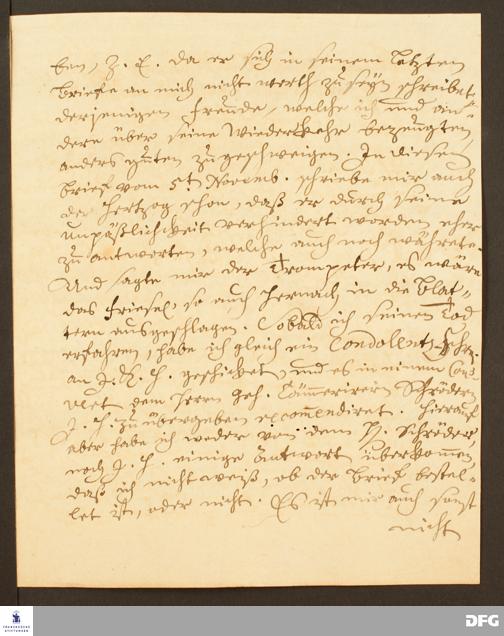 ben, Z. E. da er sich in seinem letzten
Briefe an mich nicht werth zu seyn schreibet
derjenigen Freude, welche ich und an-
dere über seine Wiederkehr bezeugten,
anders guten zu geschweigen. In diesem
brief vom 5t Novemb. schriebe mir auch
der Hertzog schon, daß er durch seine
Unpäßlichkeit verhindert worden eher
zu antworten, welche auch noch währete.
Und sagte mir der Trompeter, es wäre
das Friesel, so auch hernach in die Blat-
tern ausgeschlagen. Sobald ich seinen Tod
erfahren, habe ich gleich ein Condolentz
an J. H. geschicket, und es in einem
dem Herrn Geh. Cämmerirern Schrödern
J. H. zu übergeben recommendiret. Hierauf
aber habe ich weder von dem H. Schröder
noch J. H. einige Antwort überkomen
daß ich nicht weiß, ob der brief bestel-
let ist, oder nicht. Es ist mir auch sonst
nicht
FRANCKESCHE
STIFTUNGEN
DFG